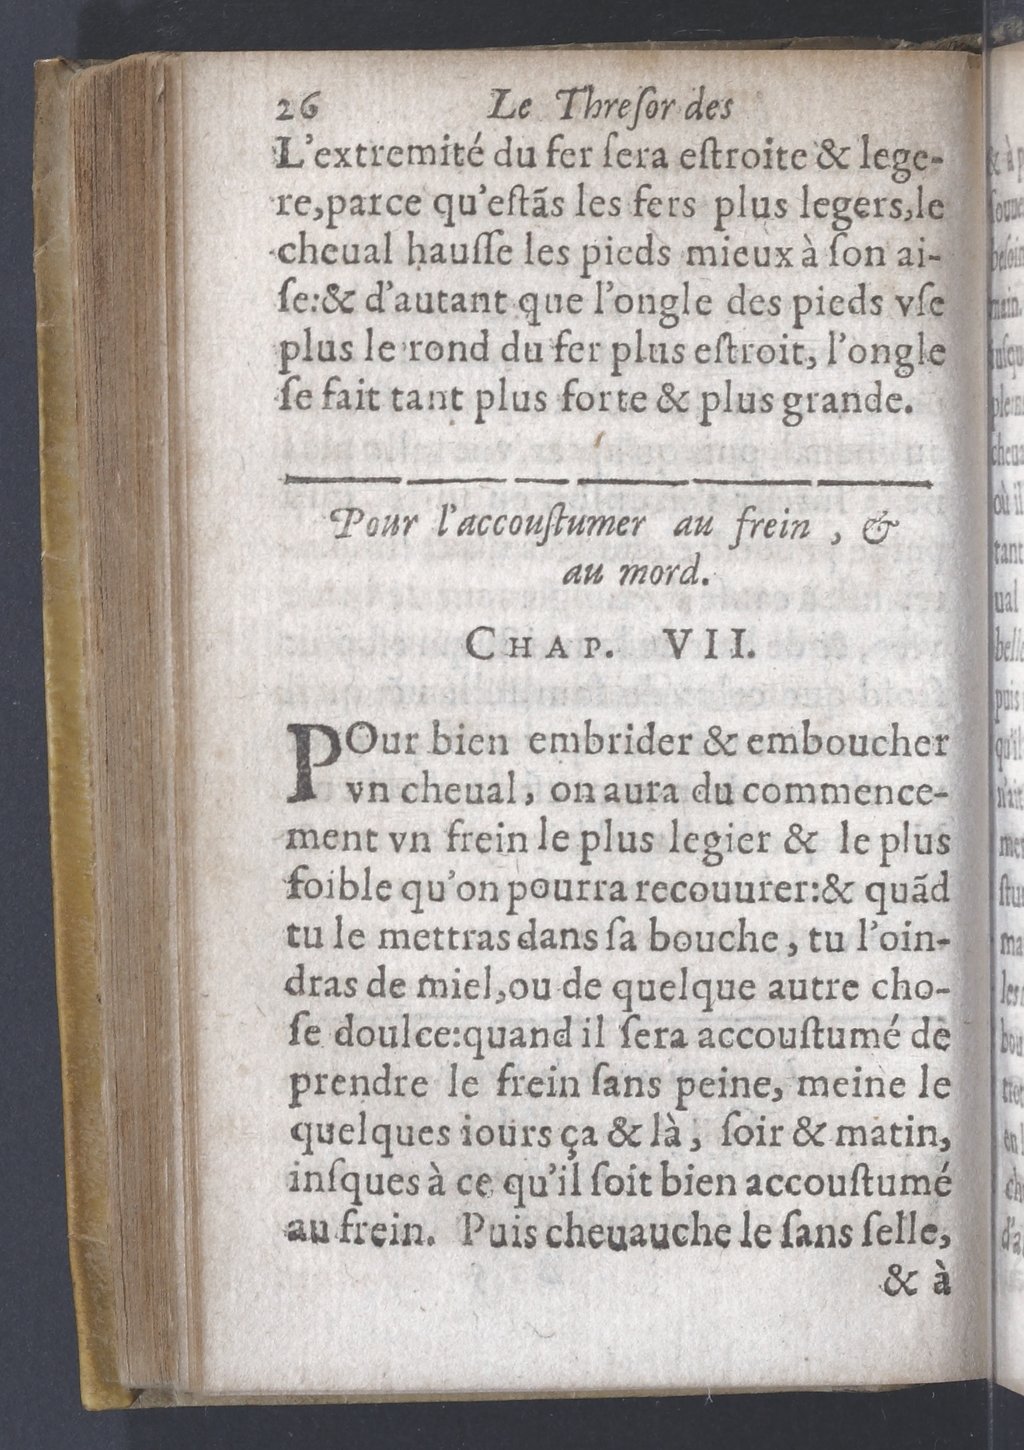 26 Le Threſor des
L'extremité du fer ſera eſtroite & lege-
re,parce qu'eſtãs les fers plus legers,le
cheual hauſſe les pieds mieux à ſon ai-
ſe:& d'autant que l'ongle des pieds vſe
plus le rond du fer plus eſtroit, l'ongle
ſe fait tant plus forte & plus grande.
Pour l'accouſtumer au frein , &
au mord.
CHAP. VII.
POur bien embrider & emboucher
vn cheual, on aura du commence-
ment vn frein le plus legier & le plus
foible qu'on pourra recouurer:& quãd
tu le mettras dans ſa bouche, tu l'oin-
dras de miel,ou de quelque autre cho-
ſe doulce:quand il ſera accouſtumé de
prendre le frein ſans peine, meine le
quelques iours ça & là, ſoir & matin,
inſques à ce qu'il ſoit bien accouſtumé
au frein. Puis cheuauche le ſans ſelle,
& à